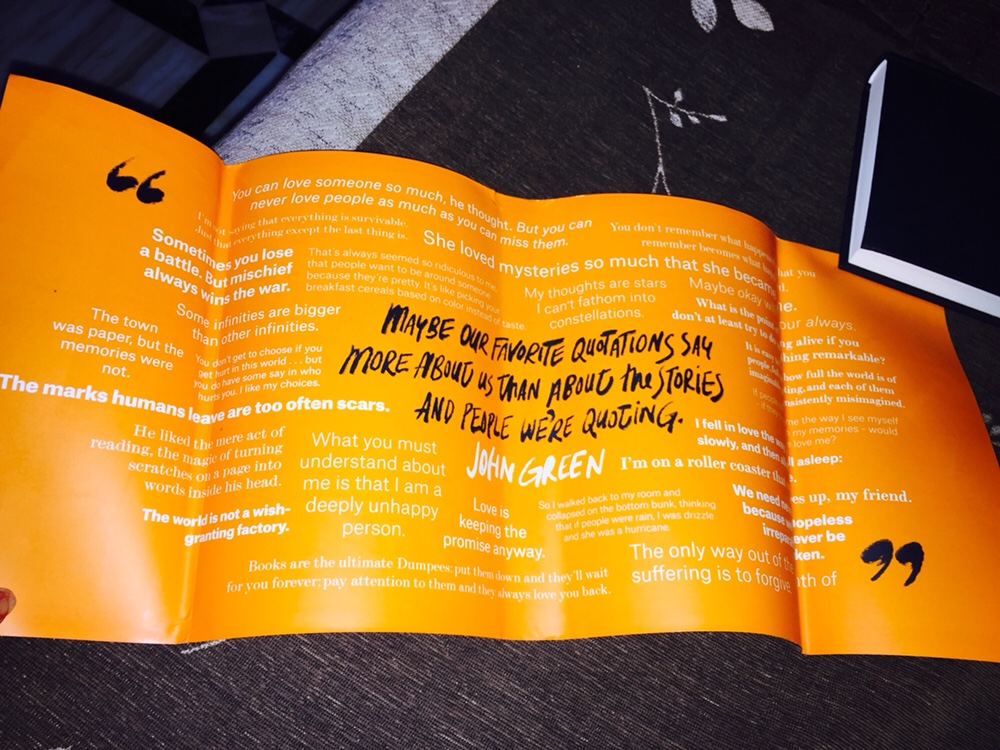 “
You can love someone so much, he thought. But you can
never love people as much as you can miss them.
I'm not saying that everything is survivable.
Just that everything except the last thing is.
Sometimes you lose
a battle. But mischief
always wins the war.
That's always seemed so ridiculous to me,
that people want to be around someone
because they're pretty. It's like picking your
breakfast cereals based on color instead of taste.
She loved mysteries so much that she became
You don't remember what happened.
remember becomes what
hat you
My thoughts are stars
I can't fathom into
constellations.
Maybe okay
our always.
The town
was paper, but the
memories were
not.
Some infinities are bigger
than other infinities.
You don't get to choose if you
get hurt in this world . . . but
you do have some say in who
hurts you. I like my choices.
MAYBE OUR FAVORITE QUOTATIONS SAY
MORE ABOUT US THAN ABOUT the STORIES
AND PEOPLE WE'RE QUOTING.
JOHN GREEN
What is the point
ng alive if you
don't at least try to do
hing remarkable?
It is easy
how full the world is of
people
ting, and each of them
nsistently misimagined.
me the way I see myself
my memories - would
love me?
The marks humans leave are too often scars.
He liked the mere act of
reading, the magic of turning
scratches on a page into
words inside his head.
What you must
understand about
me is that I am a
deeply unhappy
person.
I fell in love the
ll asleep:
slowly, and then
I'm on a roller coaster that
es up, my friend.
The world is not a wish-
granting factory.
Love is
keeping the
promise anyway.
So I walked back to my room and
collapsed on the bottom bunk, thinking
that if people were rain, I was drizzle
and she was a hurricane.
We need
hopeless
because
ever be
ken.
Books are the ultimate Dumpees: put them down and they'll wait
for you forever; pay attention to them and they always love you back.
The only way out of the
nth of
suffering is to forgive
”